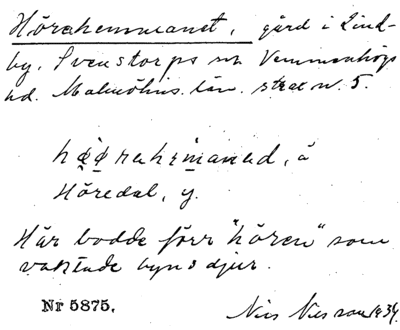 Hörahemmanet, gård i Lind-
by, Svenstorps sn Vemmenhögs
hd. Malmöhus. län. strax n. 5.
hǿǿrahemanad, å
Höredal, y.
Här bodde förr "hören" som
vaktade byns djur.
Nr 5875. Nils Nilsson 1934.